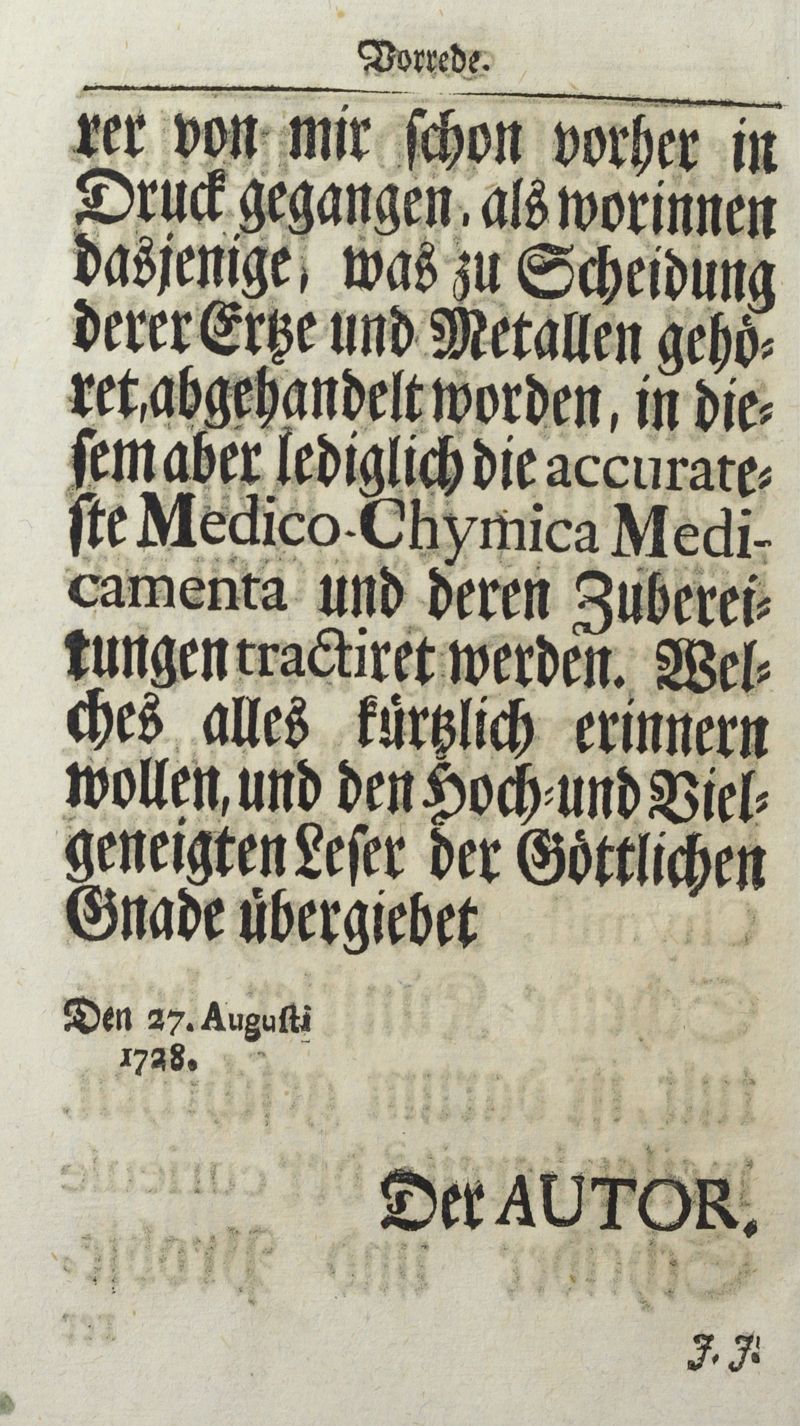 Vorrede.
rer von mir ſchon vorher in
Druck gegangen, als worinnen
dasjenige, was zu Scheidung
derer Ertze und Metallen gehö⸗
ret, abgehandelt worden, in die⸗
ſem aber lediglich die accurate⸗
ſte Medico-Chymica Medi-
camenta und deren Zuberei⸗
tungen tractiret werden. Wel⸗
ches alles kürtzlich erinnern
wollen, und den Hoch⸗und Viel⸗
geneigten Leſer der Göttlichen
Gnade übergiebet
Den 27. Auguſti
1728.
Der AUTOR.
J. J.